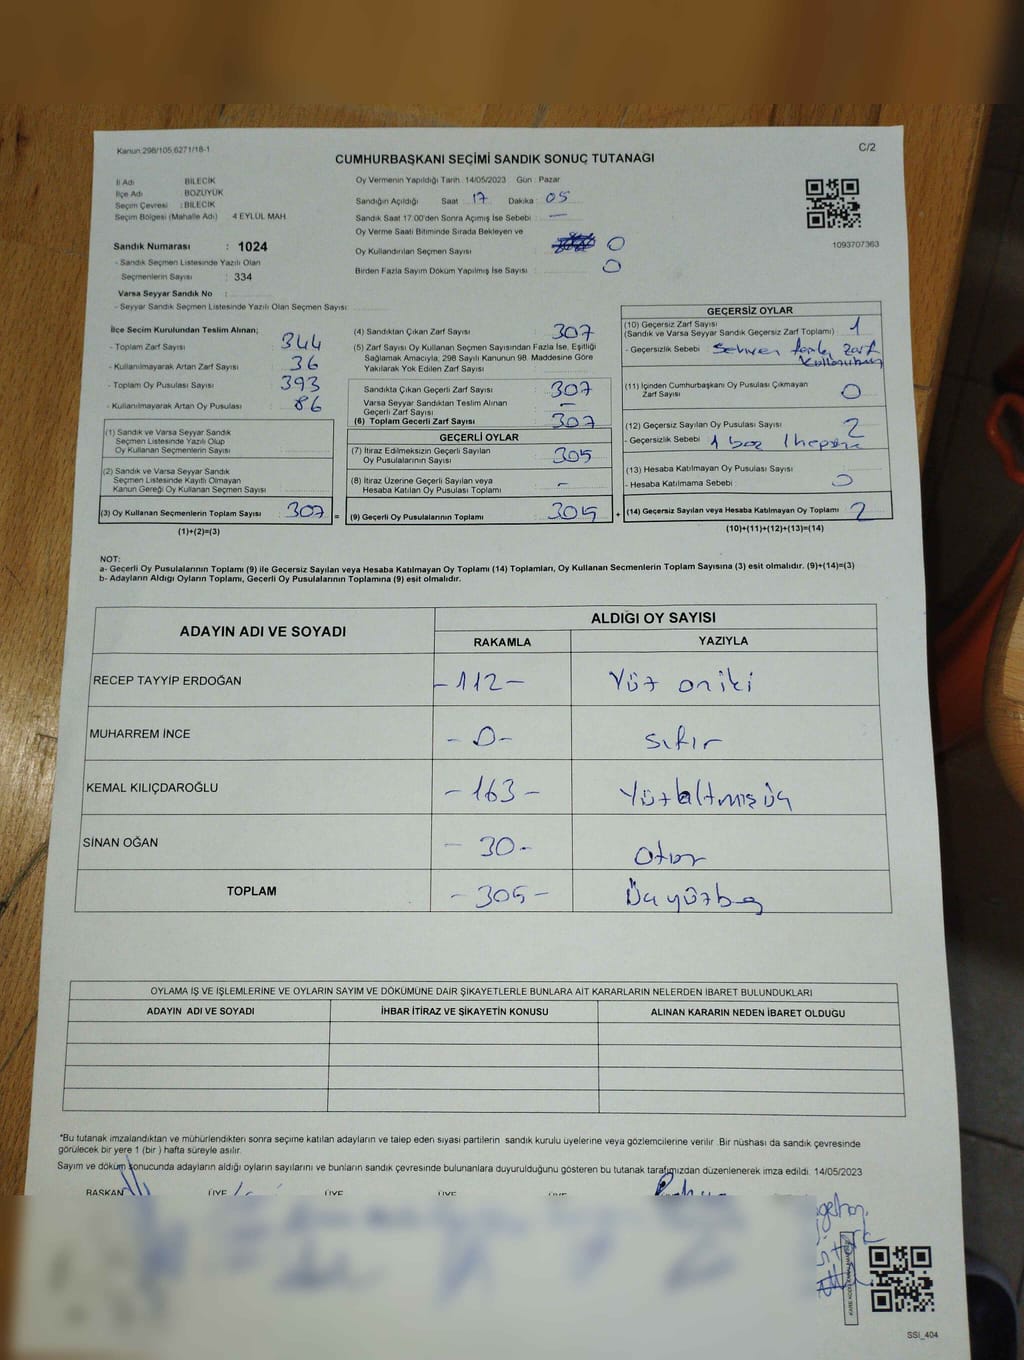 Kanun:298/105,6271/18-1
C/2
CUMHURBAŞKANI SEÇİMİ SANDIK SONUÇ TUTANAĞI
İl Adı : BİLECİK
İlçe Adı : BOZÜYÜK
Seçim Çevresi : BİLECİK
Seçim Bölgesi (Mahalle Adı) : 4 EYLÜL MAH
Sandık Numarası : 1024
- Sandık Seçmen Listesinde Yazılı Olan
Seçmenlerin Sayısı : 334
Varsa Seyyar Sandık No :
- Seyyar Sandık Seçmen Listesinde Yazılı Olan Seçmen Sayısı:
Oy Vermenin Yapıldığı Tarih :14/05/2023 Gün : Pazar
Sandığın Açıldığı Saat : 17 Dakika : 05
Sandık Saat 17:00'den Sonra Açımış İse Sebebi : —
Oy Verme Saati Bitiminde Sırada Bekleyen ve
Oy Kullandırılan Seçmen Sayısı : 0
Birden Fazla Sayım Döküm Yapılmış İse Sayısı : 0
1093707363
İlçe Seçim Kurulundan Teslim Alınan;
- Toplam Zarf Sayısı : 344
- Kullanılmayarak Artan Zarf Sayısı : 36
- Toplam Oy Pusulası Sayısı : 393
- Kullanılmayarak Artan Oy Pusulası : 86
(1) Sandık ve Varsa Seyyar Sandık
Seçmen Listesinde Yazılı Olup
Oy Kullanan Seçmenlerin Sayısı :
(2) Sandık ve Varsa Seyyar Sandık
Seçmen Listesinde Kayıtlı Olmayan
Kanun Gereği Oy Kullanan Seçmen Sayısı :
(3) Oy Kullanan Seçmenlerin Toplam Sayısı : 307 =
(1)+(2)=(3)
(4) Sandıktan Çıkan Zarf Sayısı : 307
(5) Zarf Sayısı Oy Kullanan Seçmen Sayısından Fazla İse, Eşitliği
Sağlamak Amacıyla, 298 Sayılı Kanunun 98. Maddesine Göre
Yakılarak Yok Edilen Zarf Sayısı :
Sandıkta Çıkan Geçerli Zarf Sayısı : 307
Varsa Seyyar Sandıktan Teslim Alınan
Geçerli Zarf Sayısı : —
(6) Toplam Geçerli Zarf Sayısı : 307
GEÇERLİ OYLAR
(7) İtiraz Edilmeksizin Geçerli Sayılan
Oy Pusulalarının Sayısı : 305
(8) İtiraz Üzerine Geçerli Sayılan veya
Hesaba Katılan Oy Pusulası Toplamı : -
(9) Geçerli Oy Pusulalarının Toplamı : 305 +
GEÇERSİZ OYLAR
(10) Geçersiz Zarf Sayısı : 1
(Sandık ve Varsa Seyyar Sandık Geçersiz Zarf Toplamı)
- Geçersizlik Sebebi : Sehven fazla zarf
(11) İçinden Cumhurbaşkanı Oy Pusulası Çıkmayan
Zarf Sayısı : 0
(12) Geçersiz Sayılan Oy Pusulası Sayısı : 2
- Geçersizlik Sebebi : 1 boş 1 hepsine
(13) Hesaba Katılmayan Oy Pusulası Sayısı : 0
- Hesaba Katılmama Sebebi :
(14) Geçersiz Sayılan veya Hesaba Katılmayan Oy Toplamı : 2
(10)+(11)+(12)+(13)=(14)
NOT:
a- Geçerli Oy Pusulalarının Toplamı (9) ile Geçersiz Sayılan veya Hesaba Katılmayan Oy Toplamı (14) Toplamları, Oy Kullanan Seçmenlerin Toplam Sayısına (3) eşit olmalıdır. (9)+(14)=(3)
b- Adayların Aldığı Oyların Toplamı, Geçerli Oy Pusulalarının Toplamına (9) eşit olmalıdır.
ADAYIN ADI VE SOYADI
ALDIĞI OY SAYISI
RAKAMLA YAZIYLA
RECEP TAYYİP ERDOĞAN -112- Yüz oniki
MUHARREM İNCE -0- sıfır
KEMAL KILIÇDAROĞLU -163- Yüzaltmışüç
SİNAN OĞAN -30- otuz
TOPLAM -305- Üçyüzbeş
OYLAMA İŞ VE İŞLEMLERİNE VE OYLARIN SAYIM VE DÖKÜMÜNE DAİR ŞİKAYETLERLE BUNLARA AİT KARARLARIN NELERDEN İBARET BULUNDUKLARI
ADAYIN ADI VE SOYADI İHBAR İTİRAZ VE ŞİKAYETİN KONUSU ALINAN KARARIN NEDEN İBARET OLDUĞU
*Bu tutanak imzalandıktan ve mühürlendikten sonra seçime katılan adayların ve talep eden siyasi partilerin sandık kurulu üyelerine veya gözlemcilerine verilir. Bir nüshası da sandık çevresinde
görülecek bir yere 1 (bir) hafta süreyle asılır.
Sayım ve döküm sonucunda adayların aldığı oyların sayılarını ve bunların sandık çevresinde bulunanlara duyurulduğunu gösteren bu tutanak tarafımızdan düzenlenerek imza edildi. 14/05/2023
BAŞKAN ÜYE ÜYE ÜYE ÜYE
SSI_404